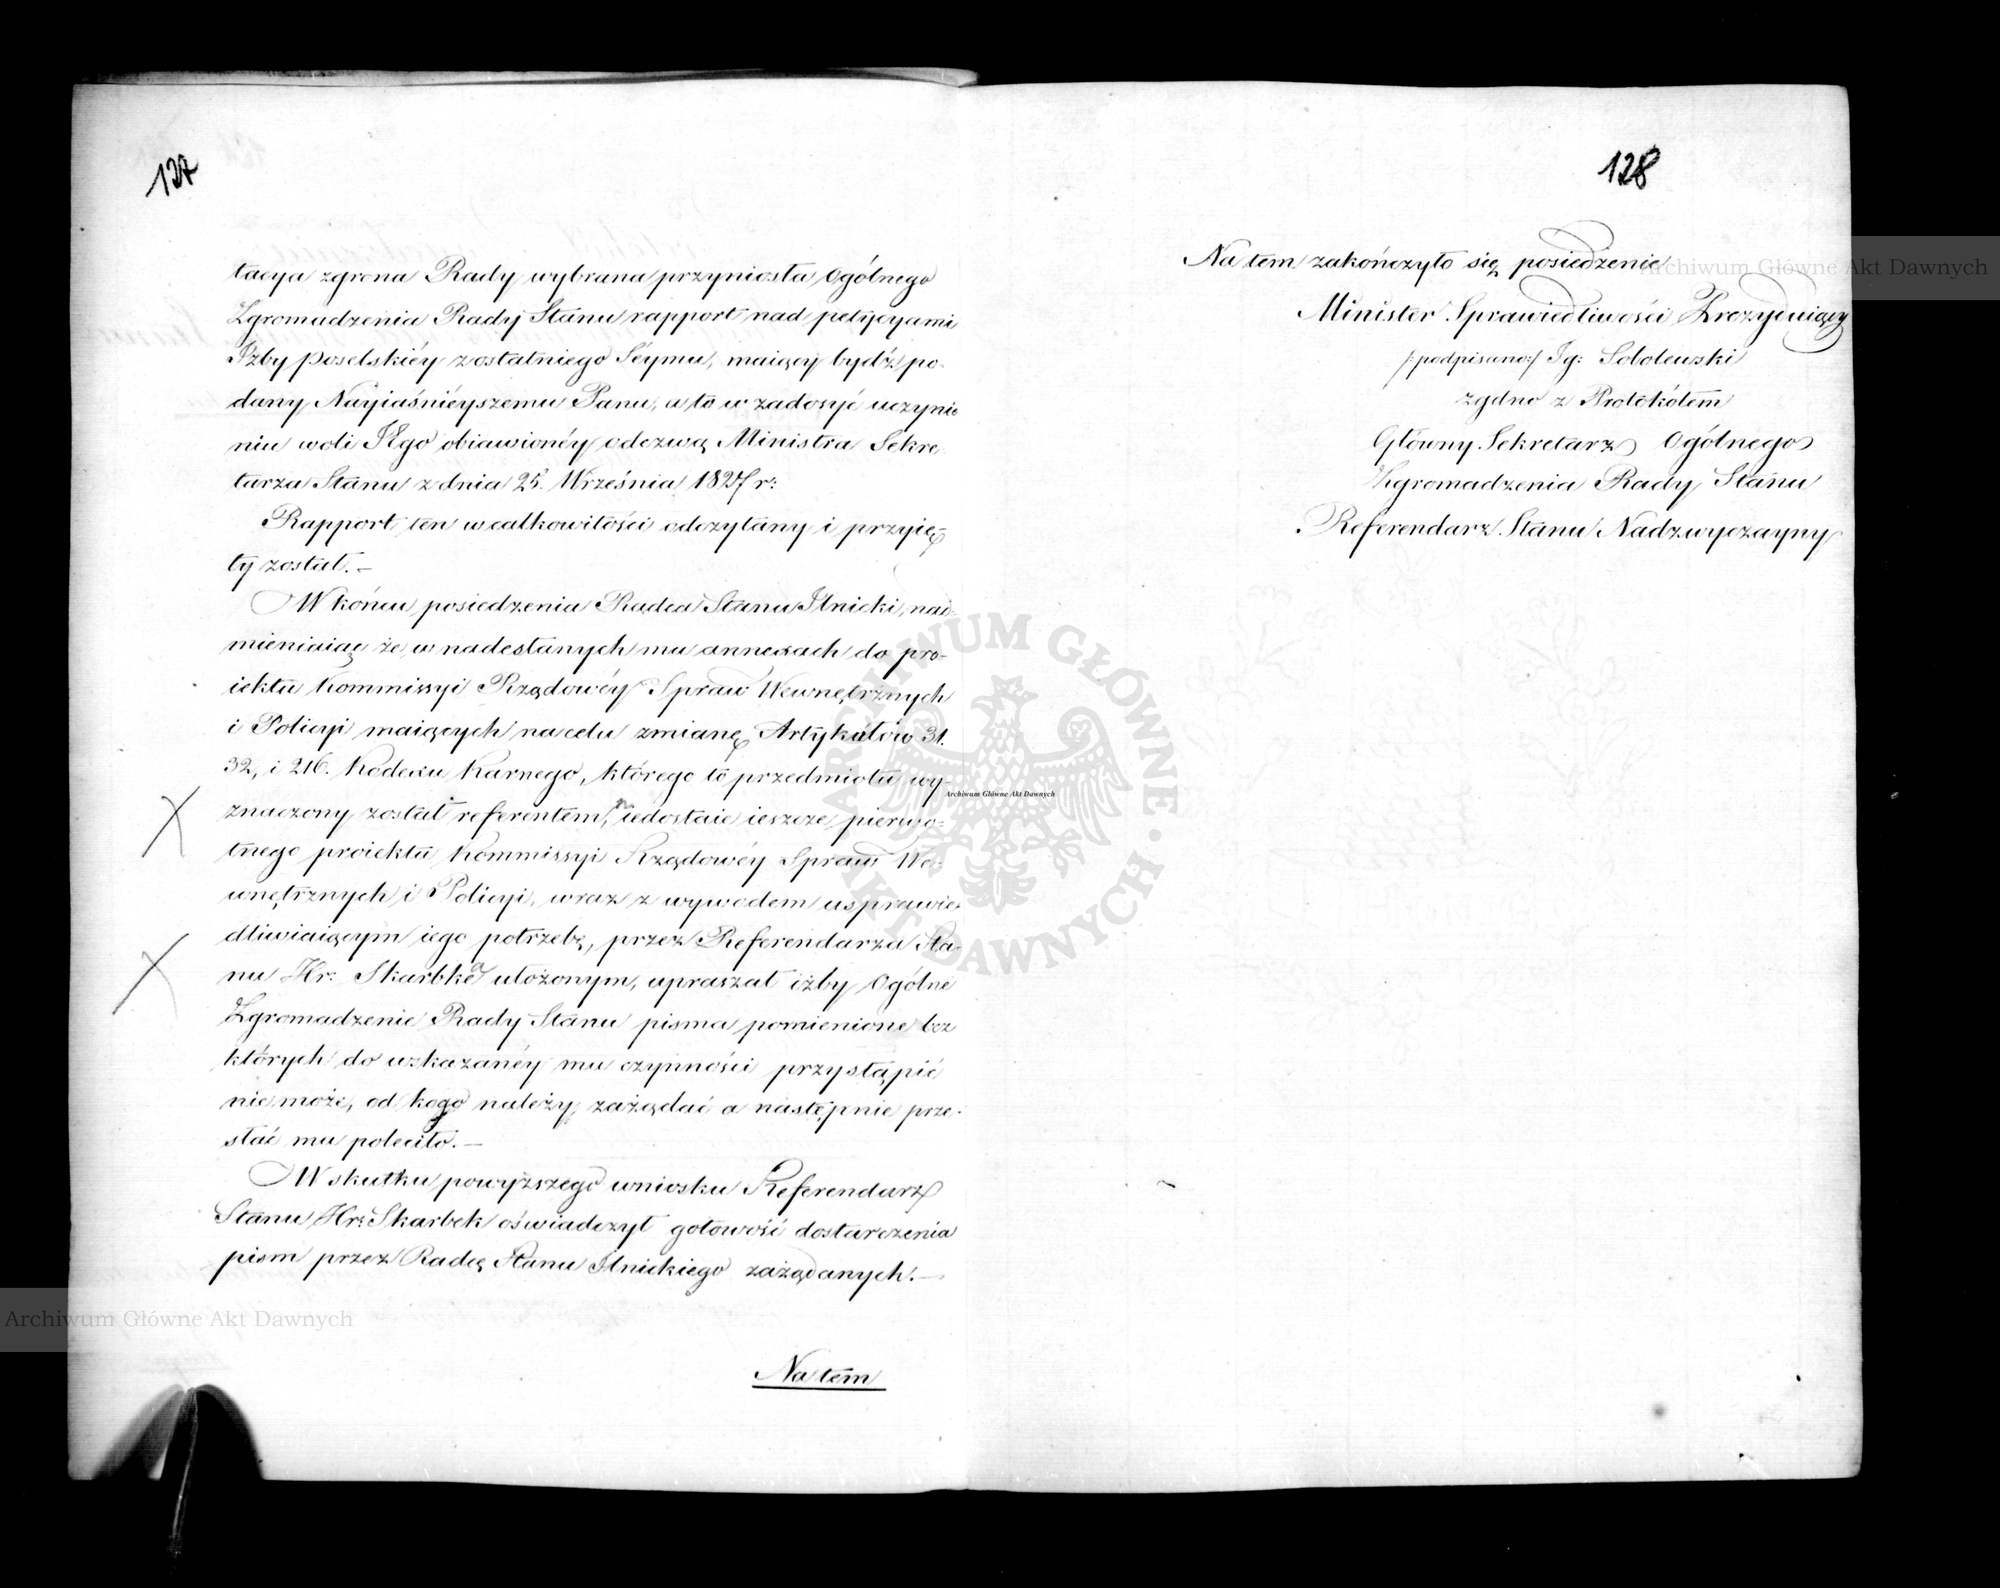 127
tacya zgrona Rady wybrana przyniosła Ogólnego
Zgromadzenia Rady Stanu rapport nad petycyami
Izby poselskiéy z ostatniego Séymu, maiący bydź po-
dany Nayiaśniéyszemu Panu, a to w zadosyć uczynie
niu woli JEgo obiawionéy odezwą Ministra Sekre-
tarza Stanu z dnia 25. Września 1827 r:
Rapport ten w całkowitości odczytany i przyię-
ty został.—
W końcu posiedzenia Radca Stanu Ilnicki, nad-
mieniaiąc że w nadesłanych mu annexach do pro-
iektu Kommissyi Rządowéy Spraw Wewnętrznych
i Policyi maiących na celu zmianę Artykułów 31.
32, i 216. Kodexu Karnego, którego to przedmiotu wy-
znaczony został referentem, niedostaie ieszcze pierwo-
tnego proiektu Kommissyi Rządowéy Spraw We-
wnętrznych i Policyi, wraz z wywodem usprawie-
dliwiaiącym iego potrzebę, przez Referendarza Sta-
nu Hr: Skarbka ułożonym, upraszał iżby Ogólne
Zgromadzenie Rady Stanu pisma pomienione bez
których do wskazanéy mu czynności przystąpić
nie może, od kogo należy, zażądać a następnie prze-
słać mu poleciło.—
W skutku powyższego wniosku Referendarz
Stanu Hr: Skarbek oświadczył gotowość dostarczenia
pism przez Radcę Stanu Ilnickiego zażądanych.—
Na tem
128
Na tem zakończyło się posiedzenie
Minister Sprawiedliwości Prezyduiący
/:podpisano:/ Ig: Sobolewski
zgdno z Protokółem
Główny Sekretarz Ogólnego
Zgromadzenia Rady Stanu
Referendarz Stanu Nadzwyczayny
Archiwum Główne Akt Dawnych
ARCHIWUM GŁÓWNE AKT DAWNYCH
Archiwum Główne Akt Dawnych
Archiwum Główne Akt Dawnych